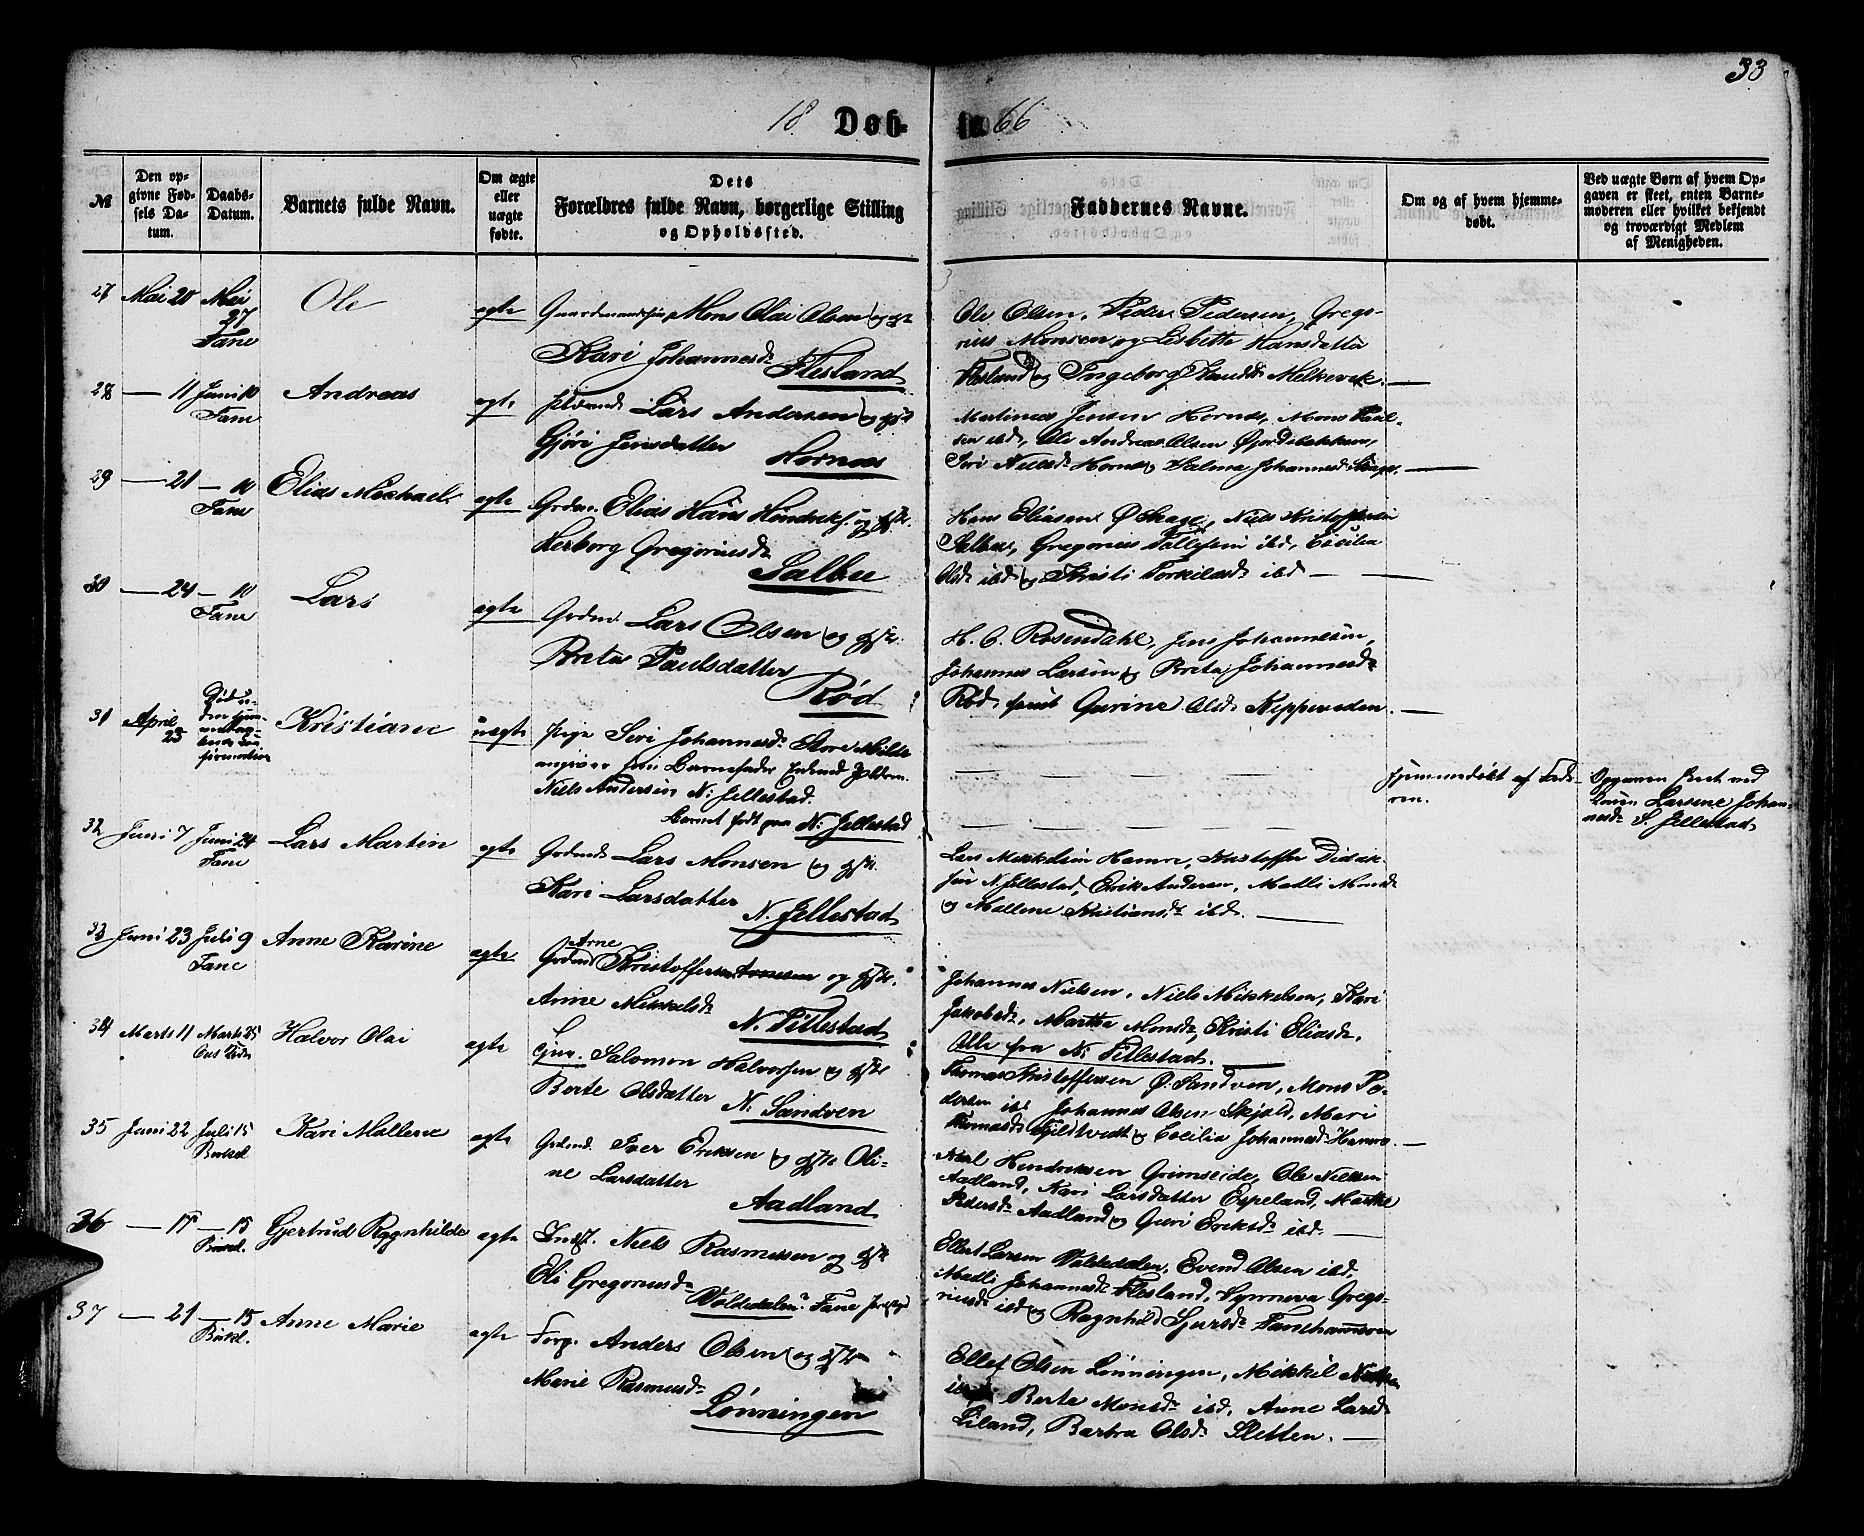 33
18 Døb- te 66
№
Den op-
givne Fød-
sels Da-
tum.
Daabs-
Datum.
Barnets fulde Navn.
Om ægte
eller
uægte
fødte.
Dets
Forældres fulde Navn, borgerlige Stilling
og Opholdssted.
Faddernes Navne.
Om og af hvem hjemme-
døbt.
Ved uægte Børn af hvem Op-
gaven er skeet, enten Barne-
moderen eller hvilket bekjendt
og troværdigt Medlem
af Menigheden.
27 Mai 20 Mai 27 Fane Ole ægte Mons Olai Olsen og
Kari Johannesd. Flesland
Ole Olsen, Peder Pedersen, Greg-
rius Monsen og Lisbette Hansdatter
Flesland og Ingeborg Melkevik.
28 — 11 Juni 10 Fane Andreas ægte Lars Andersen og
Gjøri Jensdatter Hornæs
Martinus Jensen Hornæs, Mons Paul-
sen ibd, Ole Andreas Olsen Øjordsbakken,
Siri Nielsd. Hornes Johannesd. Skage.
29 — 21 — 10 Fane Elias Michael ægte Grdm. Elias Hans Hendriks. og
Herborg Gregoriusd. Salbu
Hans Eliasen Ø Skage, Niels Kristoffersen
Salbu, Gregorius Tollefsen ibd, Cecilia
Olsd. ibd og Kristi Torkildsd. ibd —
30 — 24 — 10 Fane Lars ægte Grdm. Lars Olsen og
Breta Paulsdatter Rød
H. C. Rosendahl, Jens Johannesen,
Johannes Larsen og Breta Johannesd.
Rød samt Gurine Olsd. Kippersden.
31 April 23 Kristiane uægte Pige Siri Johannesd. Store Milde
angiver som Barnefader
Niels Andersen N. Jellestad.
Barnet født paa N. Jellestad
hjemmedøbt af
Larsine Johan-
nesd. S. Jellestad
32 Juni 7 Juni 24 Fane Lars Martin ægte Grdmd. Lars Monsen og
Kari Larsdatter N. Jellestad
Lars Mikkelsen Hamre, Kristoffer Didrik-
sen N. Jellestad, Erik Andersen, Madli Monsd.
og Mallene Kristiansd. ibd. —
33 Juni 23 Juli 9 Fane Anne Karine ægte Arne
Grdmd. Kristoffersen Arnesen og
Anne Mikkelsd. N. Titlestad
Johannes Nielsen, Niels Mikkelsen, Kari
Jakobsd., Marthe Monsd., Kristi Eliasd.
Alle fra N. Titlestad.
34 Marts 11 Marts 25 Halvor Olai ægte Salomon Halvorsen og
Berte Olsdatter N. Sandven
Thomas Kristoffersen Ø. Sandven, Mons Pe-
dersen ibd Johannes Olsen Skjold, Mari
Thomasd. og Cecilia Johannesd. Hamre.
35 Juni 22 Juli 15 Birkel. Kari Mallene ægte Grdmd. Iver Eriksen og Oli-
ne Larsdatter Aadland
Karl Hendriksen Grimseide, Ole Nielsen
Aadland, Kari Larsdatter Espeland, Marthe
Pedersd. Aadland og Guri Eriksd. ibd. —
36 — 17 — 15 Birkel. Gjertrud Ragnhilde ægte Indst. Niels Rasmussen og
Eli Gregoriusd. Voldedalen Fane
Ellert Larsen Voldedalen, Evend Olsen ibd,
Madli Johannesd. Flesland, Synneva Greg-
riusd. ibd og Ragnhild Sjursd. Fanehammeren
37 — 21 — 15 Birkel. Anne Marie ægte Forp. Anders Olsen og
Marie Rasmusd. Lønningen
Ellef Olsen Lønningen, Mikkel
ibd, Berte Monsd. ibd, Anne Larsd.
Liland, Barbra Olsd. Sletten. —